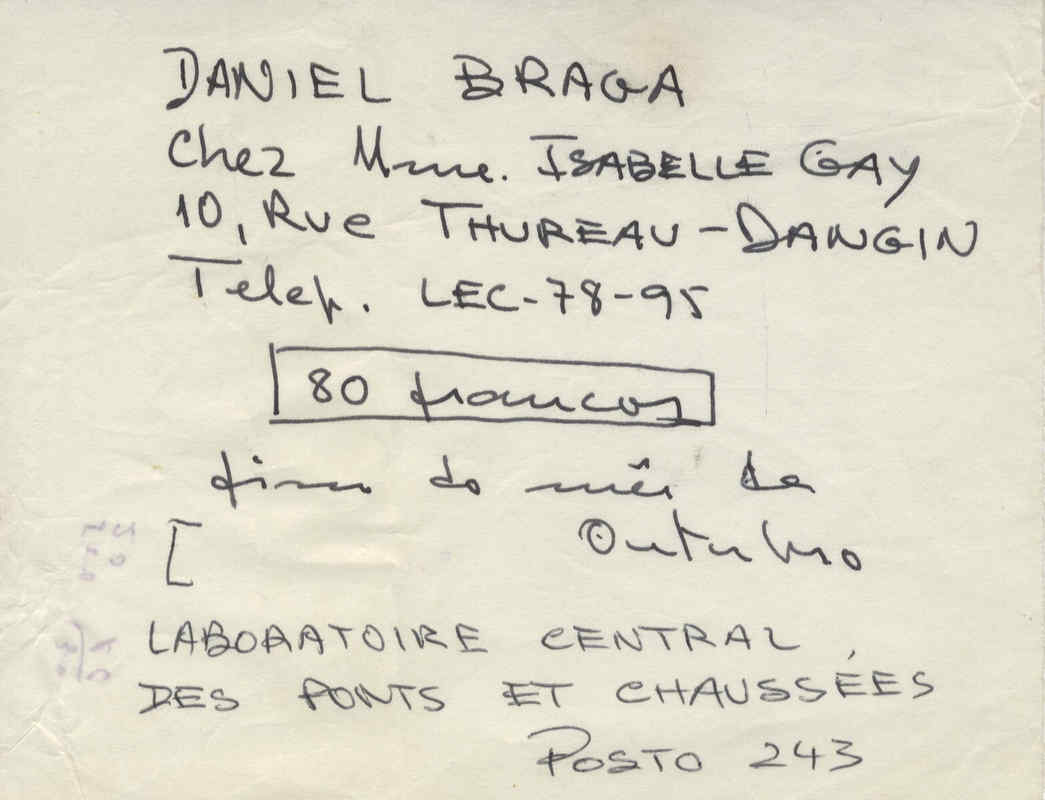 DANIEL BRAGA
Chez Mme. ISABELLE GAY
10, Rue THUREAU-DANGIN
Telep. LEC-78-95
80 francos
fim do mês de
[ Outubro
LABORATOIRE CENTRAL
DES PONTS ET CHAUSSÉES
POSTO 243